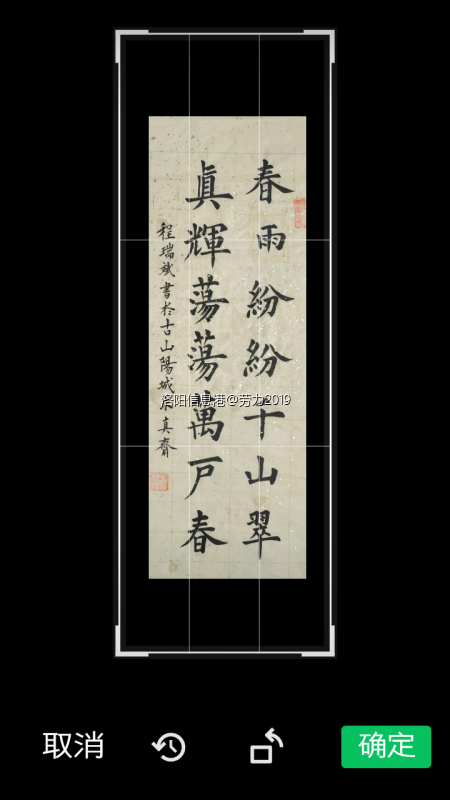 春雨紛紛千山翠
眞輝蕩蕩萬戸春
程瑞斌書扵古山陽城真齋
洛阳信息港@劳力2019
取消
确定